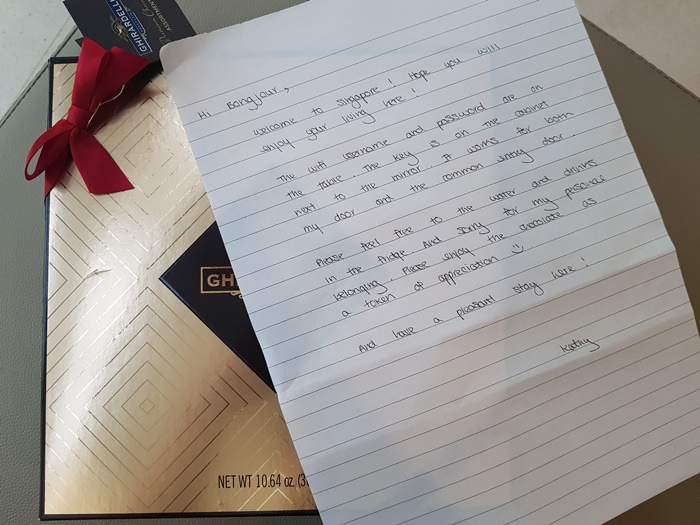 GHIRARDELLI
Hi Bangjour,
welcome to singapore! Hope you will
enjoy your living here!
The wifi username and password are on
the table. The key is on the cabinet
next to the mirror. It works for both
my door and the common entry door.
Please feel free to the water and drinks
in the fridge. And sorry for my personal
belonging. Please enjoy the chocolate as
a token of appreciation :)
And have a pleasant stay here!
Kathy
GH
NET WT 10.64 oz. (3